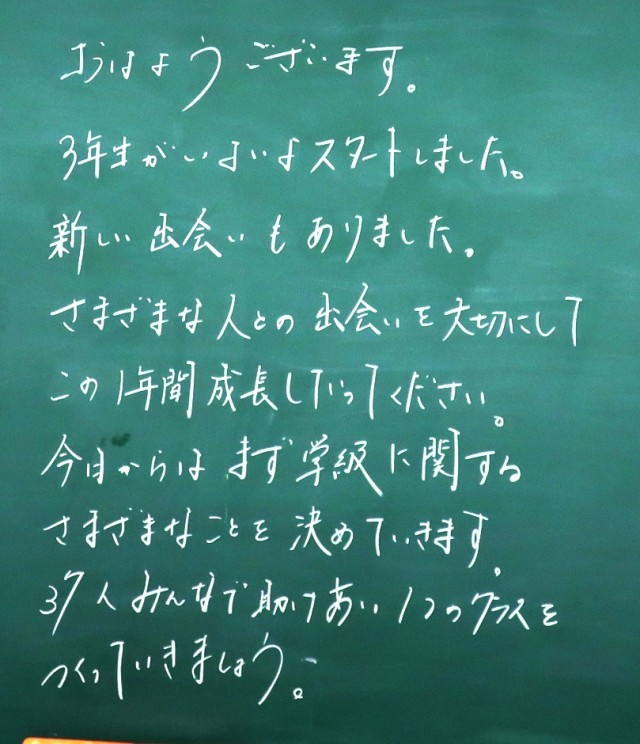 おはようございます。
3年生がいよいよスタートしました。
新しい出会いもありました。
さまざまな人との出会いを大切にして
この1年間成長していってください。
今日からはまず学級に関する
さまざまなことを決めていきます。
37人みんなで助けあい1つのクラスを
つくっていきましょう。